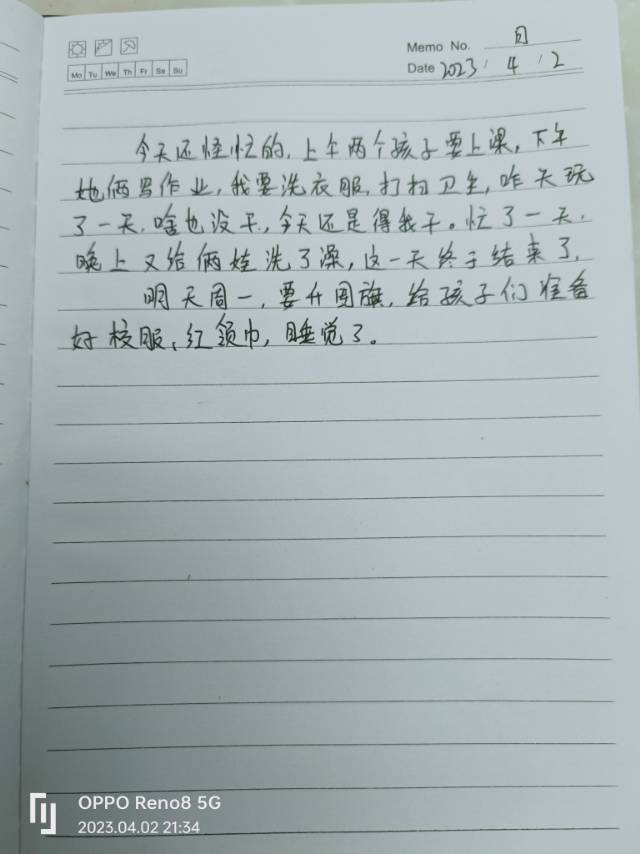 Memo No. 日
Mo Tu We Th Fr Sa Su
Date 2023 / 4 / 2
今天还怪忙的,上午两个孩子要上课,下午
她俩写作业,我要洗衣服,打扫卫生,昨天玩
了一天,啥也没干,今天还是得我干。忙了一天,
晚上又给俩娃洗了澡,这一天终于结束了,
明天周一,要升国旗,给孩子们准备
好校服、红领巾,睡觉了。
OPPO Reno8 5G
2023.04.02 21:34